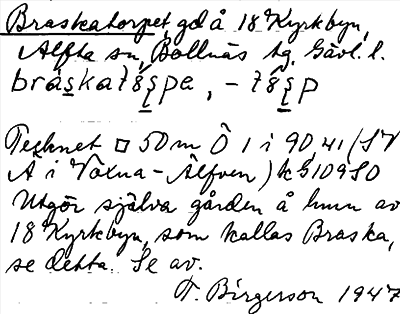 Braskatorpet, gd å 18 Kyrkbyn,
Alfta sn, Bollnäs tg. Gävl. l.
Tecknet □ 50 m Ö 1 i 90,41 (SV
Å i Voxna-Älfven) k G109SO
Utgör själva gården å hmn av
18 Kyrkbyn, som kallas Braska,
se detta. Se av.
F. Birgerson 1947